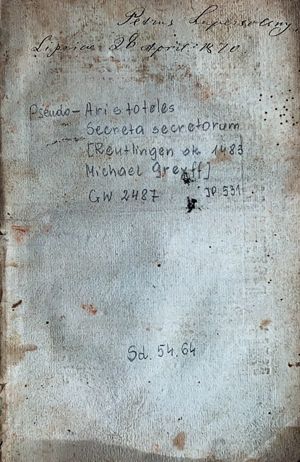 Petrus
Lipsiae 28 April 1870
Pseudo-Aristoteles
Secreta secretorum
[Reutlingen ok 1483
Michael Greyff]
GW 2487 IP. 531
Sd. 54.64